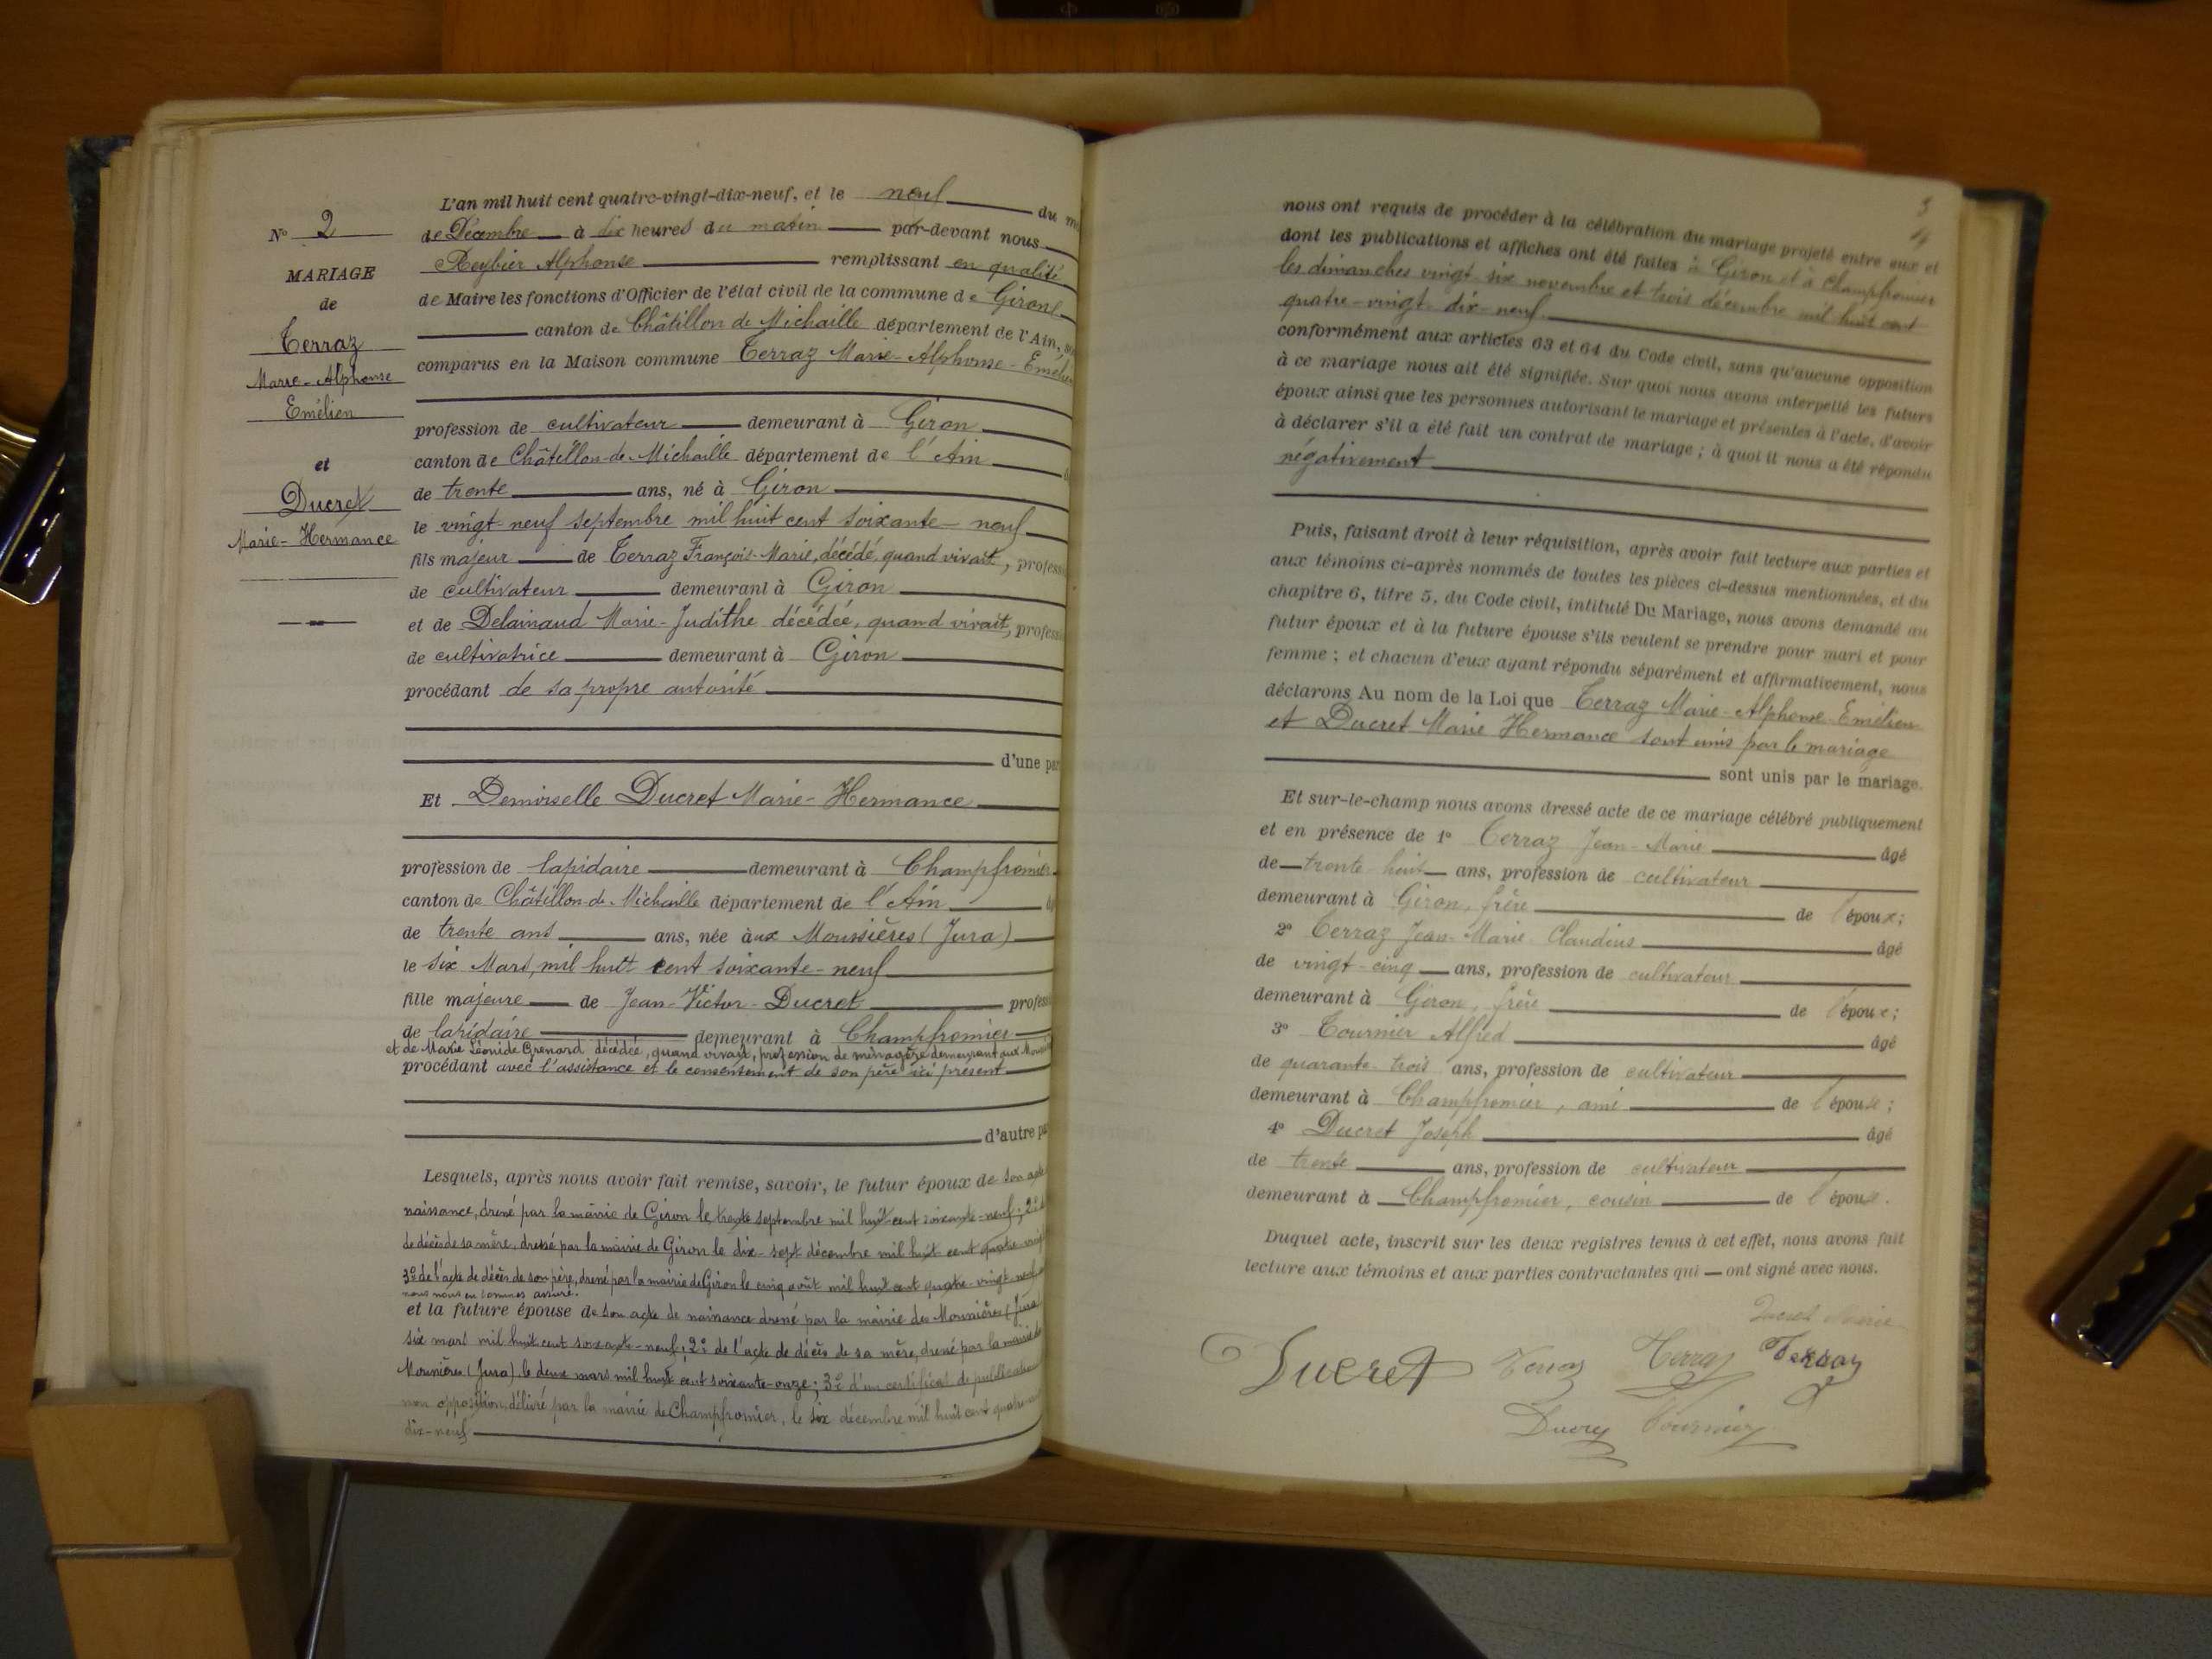 N° 2
MARIAGE
de
Terraz
Marie-Alphonse
Emélien
et
Ducret
Marie-Hermance
L'an mil huit cent quatre-vingt-dix-neuf, et le neuf du
de Décembre à dix heures du matin par-devant nous
Reybier Alphonse remplissant en qualité
de Maire les fonctions d'Officier de l'état civil de la commune de Giron
canton de Châtillon de Michaille département de l'Ain,
comparus en la Maison commune Terraz Marie-Alphonse-Emélien
profession de cultivateur demeurant à Giron
canton de Châtillon-de-Michaille département de l'Ain
de trente ans, né à Giron
le vingt neuf septembre mil huit cent soixante-neuf
fils majeur de Terraz François-Marie, décédé, quand vivait, profess
de cultivateur demeurant à Giron
et de Delainaud Marie-Judithe décédée, quand vivait, profess
de cultivatrice demeurant à Giron
procédant de sa propre autorité
d'une par
Et Demoiselle Ducret Marie-Hermance
profession de lapidaire demeurant à Champfromier
canton de Châtillon-de-Michaille département de l'Ain
de trente ans ans, née aux Moussières (Jura)
le six Mars, mil huit cent soixante-neuf
fille majeure de Jean-Victor-Ducret profess
de lapidaire demeurant à Champfromier
et de Marie Léonide Grenard décédée, quand vivait, profession de ménagère demeurant aux
procédant avec l'assistance et le consentement de son père ici présent
d'autre pa
Lesquels, après nous avoir fait remise, savoir, le futur époux de son acte
naissance, dressé par la mairie de Giron le trente septembre mil huit cent soixante-neuf; 2°
de décès de sa mère, dressé par la mairie de Giron le dix-sept décembre mil huit cent quatre-vingt
3° de l'acte de décès de son père, dressé par la mairie de Giron le cinq août mil huit cent quatre-vingt-neuf
nous nous en sommes assuré.
et la future épouse de son acte de naissance dressé par la mairie des Moussières (Jura)
six mars mil huit cent soixante-neuf; 2° de l'acte de décès de sa mère, dressé par la mairie des
Moussières (Jura), le deux mars mil huit cent soixante-onze; 3° d'un certificat de publication
non opposition, délivré par la mairie de Champfromier, le six décembre mil huit cent quatre
dix-neuf
3
nous ont requis de procéder à la célébration du mariage projeté entre eux et
dont les publications et affiches ont été faites à Giron et à Champfromier
les dimanches vingt-six novembre et trois décembre mil huit cent
quatre-vingt-dix-neuf
conformément aux articles 63 et 64 du Code civil, sans qu'aucune opposition
à ce mariage nous ait été signifiée. Sur quoi nous avons interpellé les futurs
époux ainsi que les personnes autorisant le mariage et présentes à l'acte, d'avoir
à déclarer s'il a été fait un contrat de mariage; à quoi il nous a été répondu
négativement
Puis, faisant droit à leur réquisition, après avoir fait lecture aux parties et
aux témoins ci-après nommés de toutes les pièces ci-dessus mentionnées, et du
chapitre 6, titre 5, du Code civil, intitulé Du Mariage, nous avons demandé au
futur époux et à la future épouse s'ils veulent se prendre pour mari et pour
femme; et chacun d'eux ayant répondu séparément et affirmativement, nous
déclarons Au nom de la Loi que Terraz Marie-Alphonse-Emélien
et Ducret Marie Hermance sont unis par le mariage
sont unis par le mariage.
Et sur-le-champ nous avons dressé acte de ce mariage célébré publiquement
et en présence de 1° Terraz Jean-Marie âgé
de trente huit ans, profession de cultivateur
demeurant à Giron, frère de l'époux;
2° Terraz Jean-Marie Claudius âgé
de vingt-cinq ans, profession de cultivateur
demeurant à Giron, frère de l'époux;
3° Tournier Alfred âgé
de quarante-trois ans, profession de cultivateur
demeurant à Champfromier, ami de l'épouse;
4° Ducret Joseph âgé
de trente ans, profession de cultivateur
demeurant à Champfromier, cousin de l'épouse.
Duquel acte, inscrit sur les deux registres tenus à cet effet, nous avons fait
lecture aux témoins et aux parties contractantes qui ont signé avec nous.
Ducret Marie
Ducret Terraz Terraz Terraz
Ducret Tournier